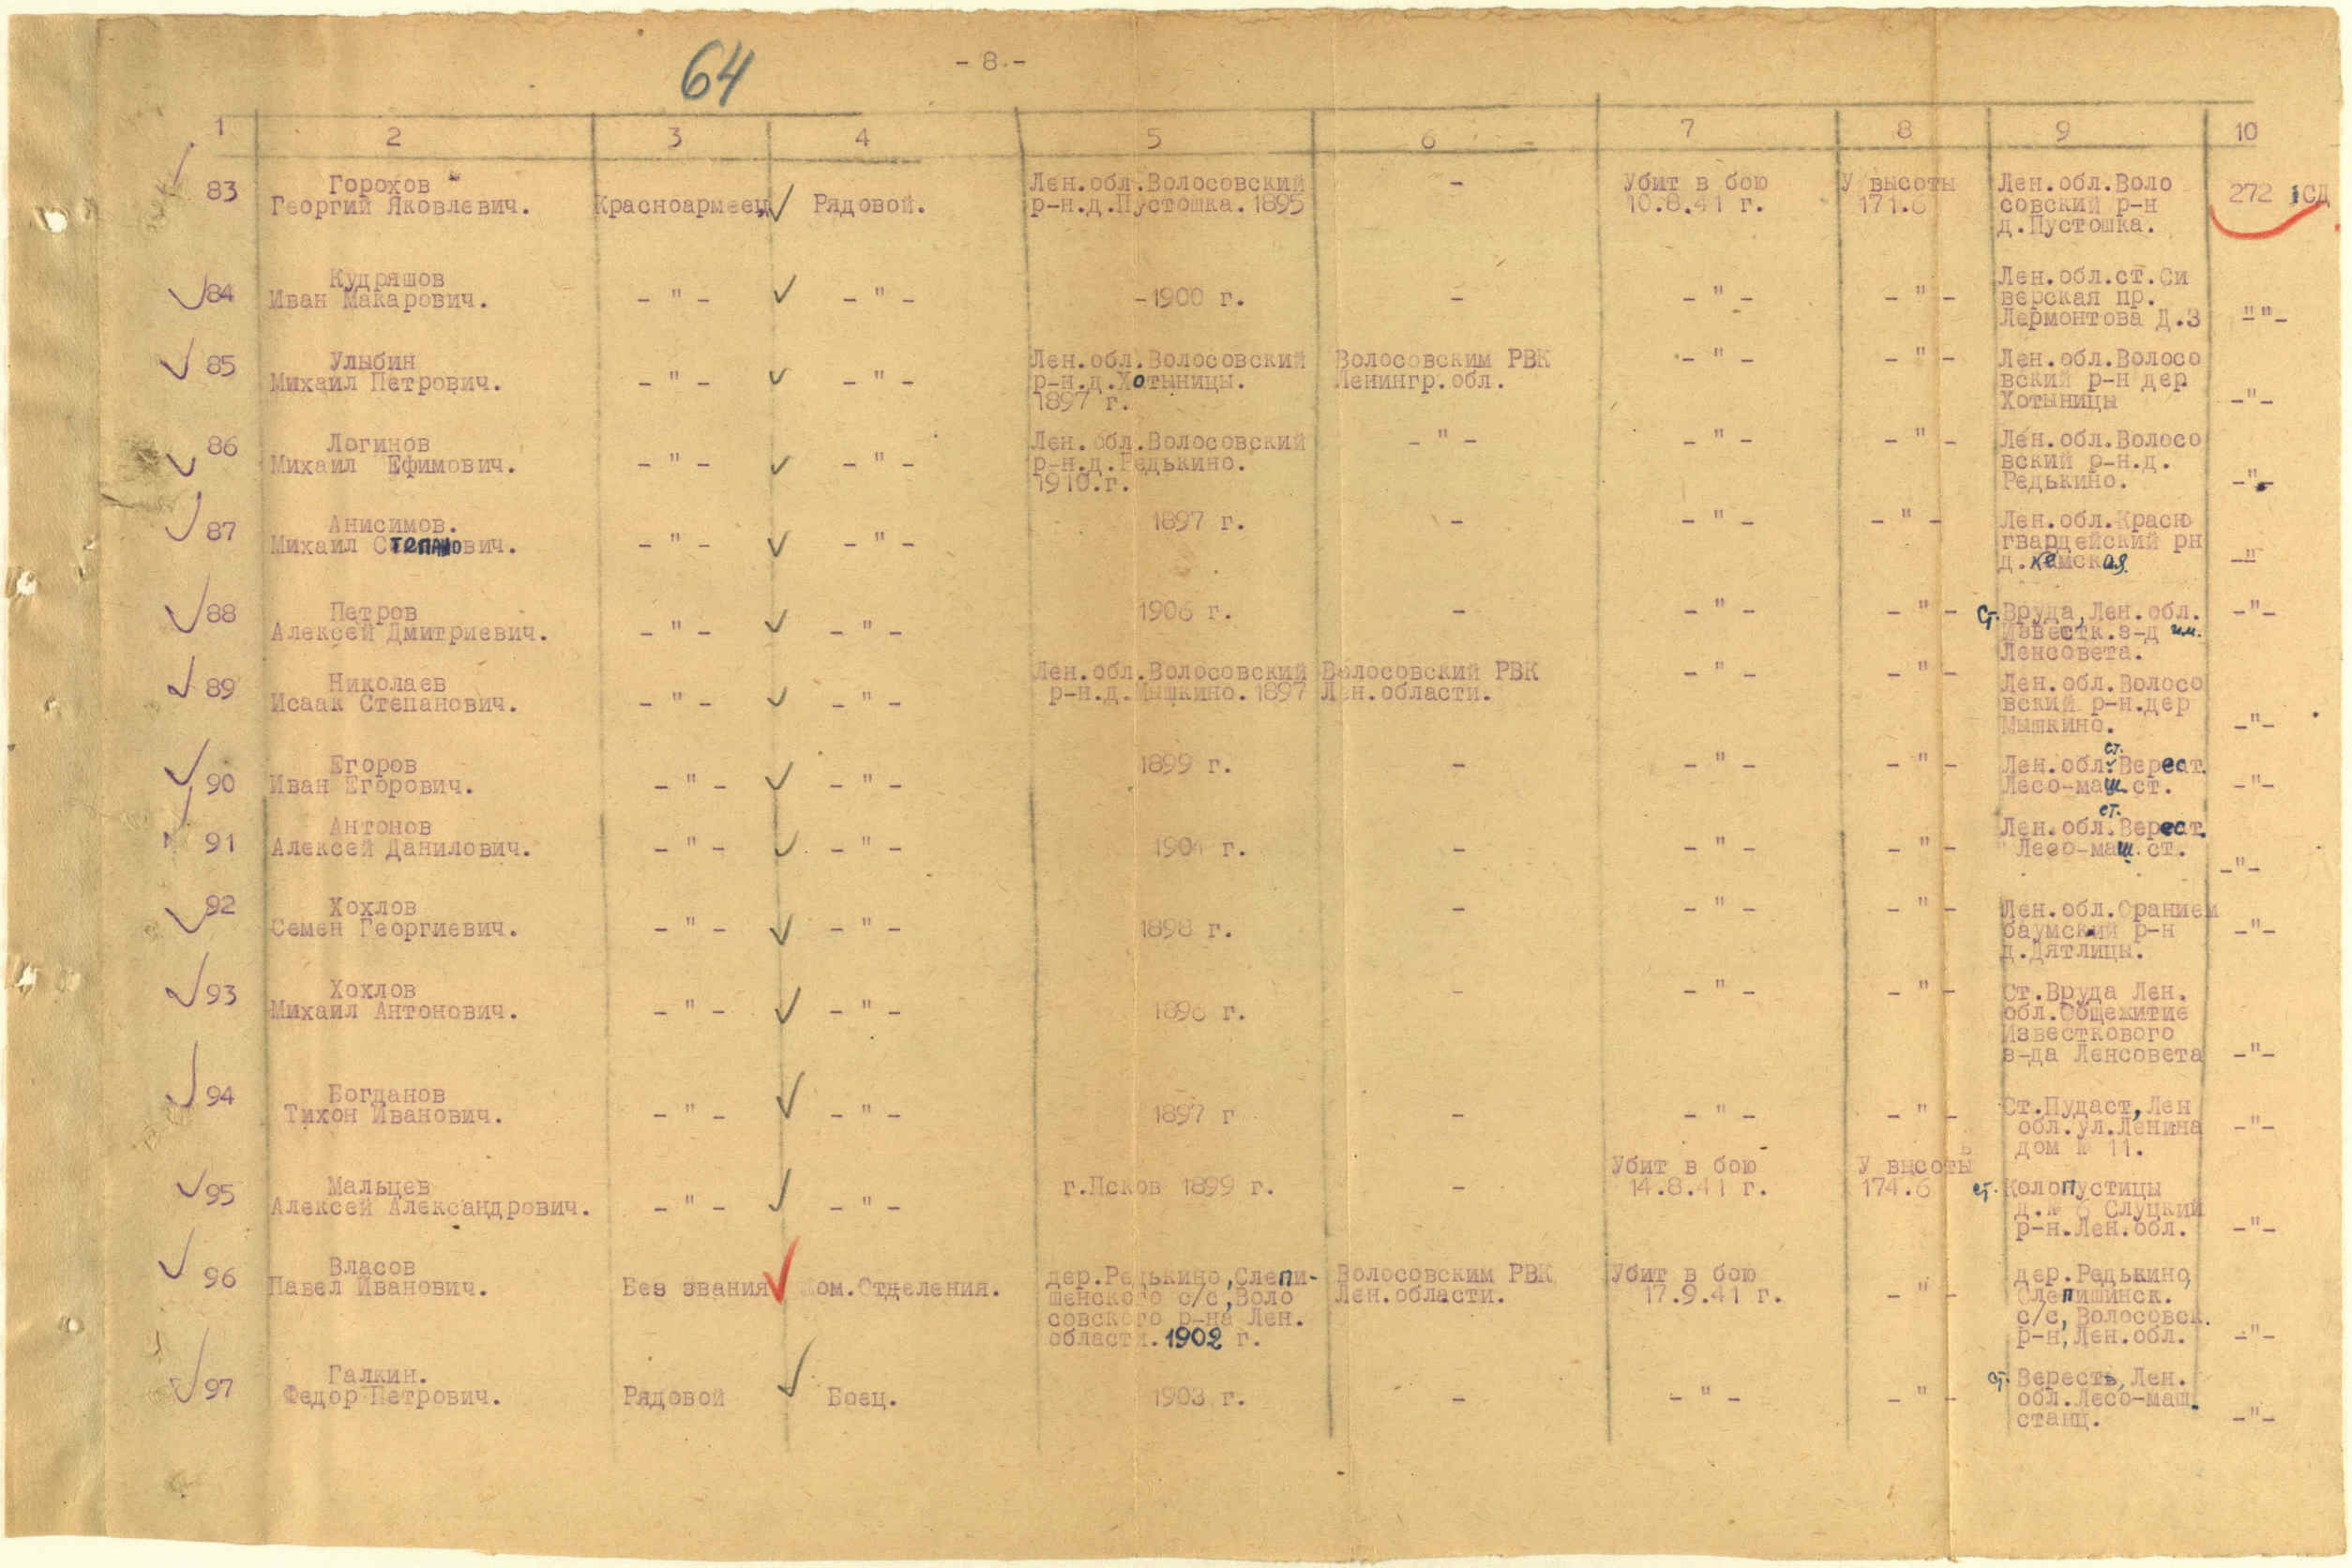 64
- 8 -
1 2 3 4 5 6 7 8 9 10
83 Горохов
Георгий Яковлевич. Красноармеец Рядовой. Лен.обл.Волосовский
р-н.д.Пустошка.1895 - Убит в бою
10.8.41 г. У высоты
171.6 Лен.обл.Воло
совский р-н
д.Пустошка. 272 СД
84 Кудряшов
Иван Макарович. - " - - " - -1900 г. - - " - - " - Лен.обл.ст.Си
верская пр.
Лермонтова Д.3 -"-
85 Улыбин
Михаил Петрович. - " - - " - Лен.обл.Волосовский
р-н.д.Хотыницы.
1897 г. Волосовским РВК
Ленингр.обл. - " - - " - Лен.обл.Волосо
вский р-н дер
Хотыницы -"-
86 Логинов
Михаил Ефимович. - " - - " - Лен.обл.Волосовский
р-н.д.Редькино.
1910.г. - " - - " - - " - Лен.обл.Волосо
вский р-н.д.
Редькино. -"-
87 Анисимов.
Михаил Степанович. - " - - " - 1897 г. - - " - - " - Лен.обл.Красно
гвардейский рн
д.Кемская -"
88 Петров
Алексей Дмитриевич. - " - - " - 1906 г. - - " - - " - ст.Вруда,Лен.обл.
Известк.з-д им.
Ленсовета. -"-
89 Николаев
Исаак Степанович. - " - - " - Лен.обл.Волосовский
р-н.д.Мышкино.1897 Волосовский РВК
Лен.области. - " - - " - Лен.обл.Волосо
вский р-н.дер
Мышкино. -"-
90 Егоров
Иван Егорович. - " - - " - 1899 г. - - " - - " - Лен.обл.ст.Верест.
Лесо-маш.ст. -"-
91 Антонов
Алексей Данилович. - " - - " - г. - - " - - " - Лен.обл.ст.Верест.
Лесо-маш.ст. -"-
92 Хохлов
Семен Георгиевич. - " - - " - 1898 г. - - " - - " - Лен.обл.Оранием
баумский р-н
д.Дятлицы. -"-
93 Хохлов
Михаил Антонович. - " - - " - г. - - " - - " - Ст.Вруда Лен.
обл.Общежитие
Известкового
з-да Ленсовета -"-
94 Богданов
Тихон Иванович. - " - - " - 1897 г - - " - - " - Ст.Пудаст,Лен
обл.ул.Ленина
дом № 11. -"-
95 Мальцев
Алексей Александрович. - " - - " - г.Псков 1899 г. - Убит в бою
14.8.41 г. У высоты
174.6 ст.Колопустицы
д.№ 6 Слуцкий
р-н.Лен.обл. -"-
96 Власов
Павел Иванович. Без звания Ком.Отделения. дер.Редькино,Слепи-
шенского с/с,Воло
совского р-на Лен.
области.1902 г. Волосовским РВК
Лен.области. Убит в бою
17.9.41 г. - " - дер.Редькино,
Слепишинск.
с/с,Волосовск.
р-н,Лен.обл. -"-
97 Галкин.
Федор Петрович. Рядовой Боец. 1903 г. - - " - - " - ст.Вересть,Лен.
обл.Лесо-маш.
станц. -"-